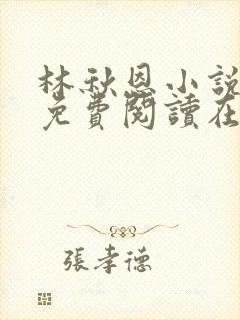 林秋恩小說
免費閱讀在
張孝德